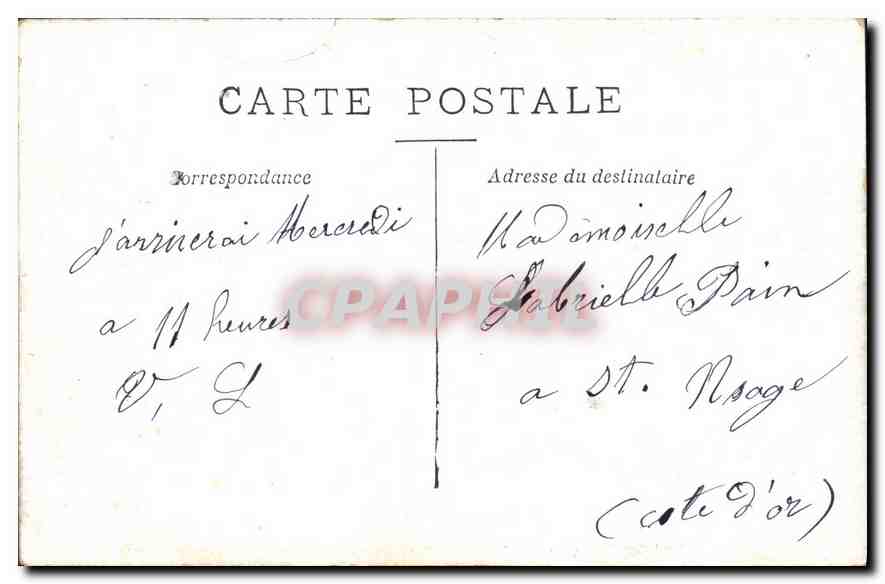 CARTE POSTALE
Correspondance
j'arriverai Mercredi
a 11 heures
V, L
Adresse du destinataire
Mademoiselle
Gabrielle Pain
a St. Usage
(cote d'or)
CPAPHIL